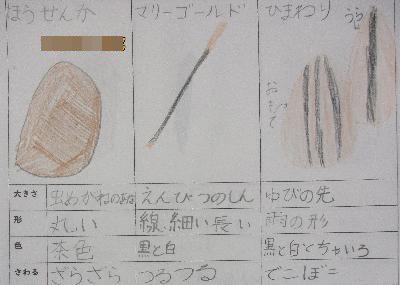 ほうせんか マリーゴールド ひまわり
うら
おもて
大きさ 虫めがねの えんぴつのしん ゆびの先
形 丸い 線、細い長い の形
色 茶色 黒と白 黒と白とちゃいろ
さわる ざらざら つるつる でこぼこ